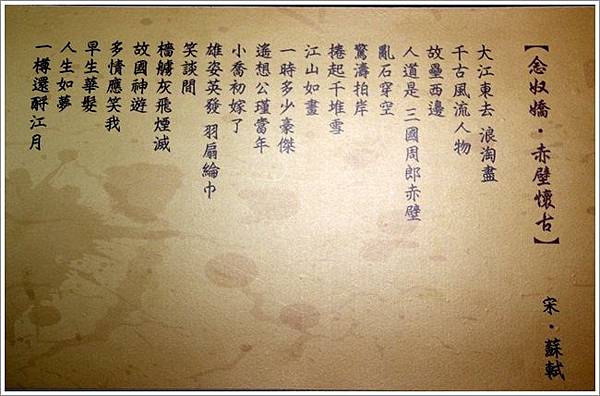 【念奴嬌·赤壁懷古】
宋·蘇軾
大江東去 浪淘盡
千古風流人物
故壘西邊
人道是 三國周郎赤壁
亂石穿空
驚濤拍岸
捲起千堆雪
江山如畫
一時多少豪傑
遙想公瑾當年
小喬初嫁了
雄姿英發 羽扇綸巾
笑談間
檣艣灰飛煙滅
故國神遊
多情應笑我
早生華髮
人生如夢
一樽還酹江月